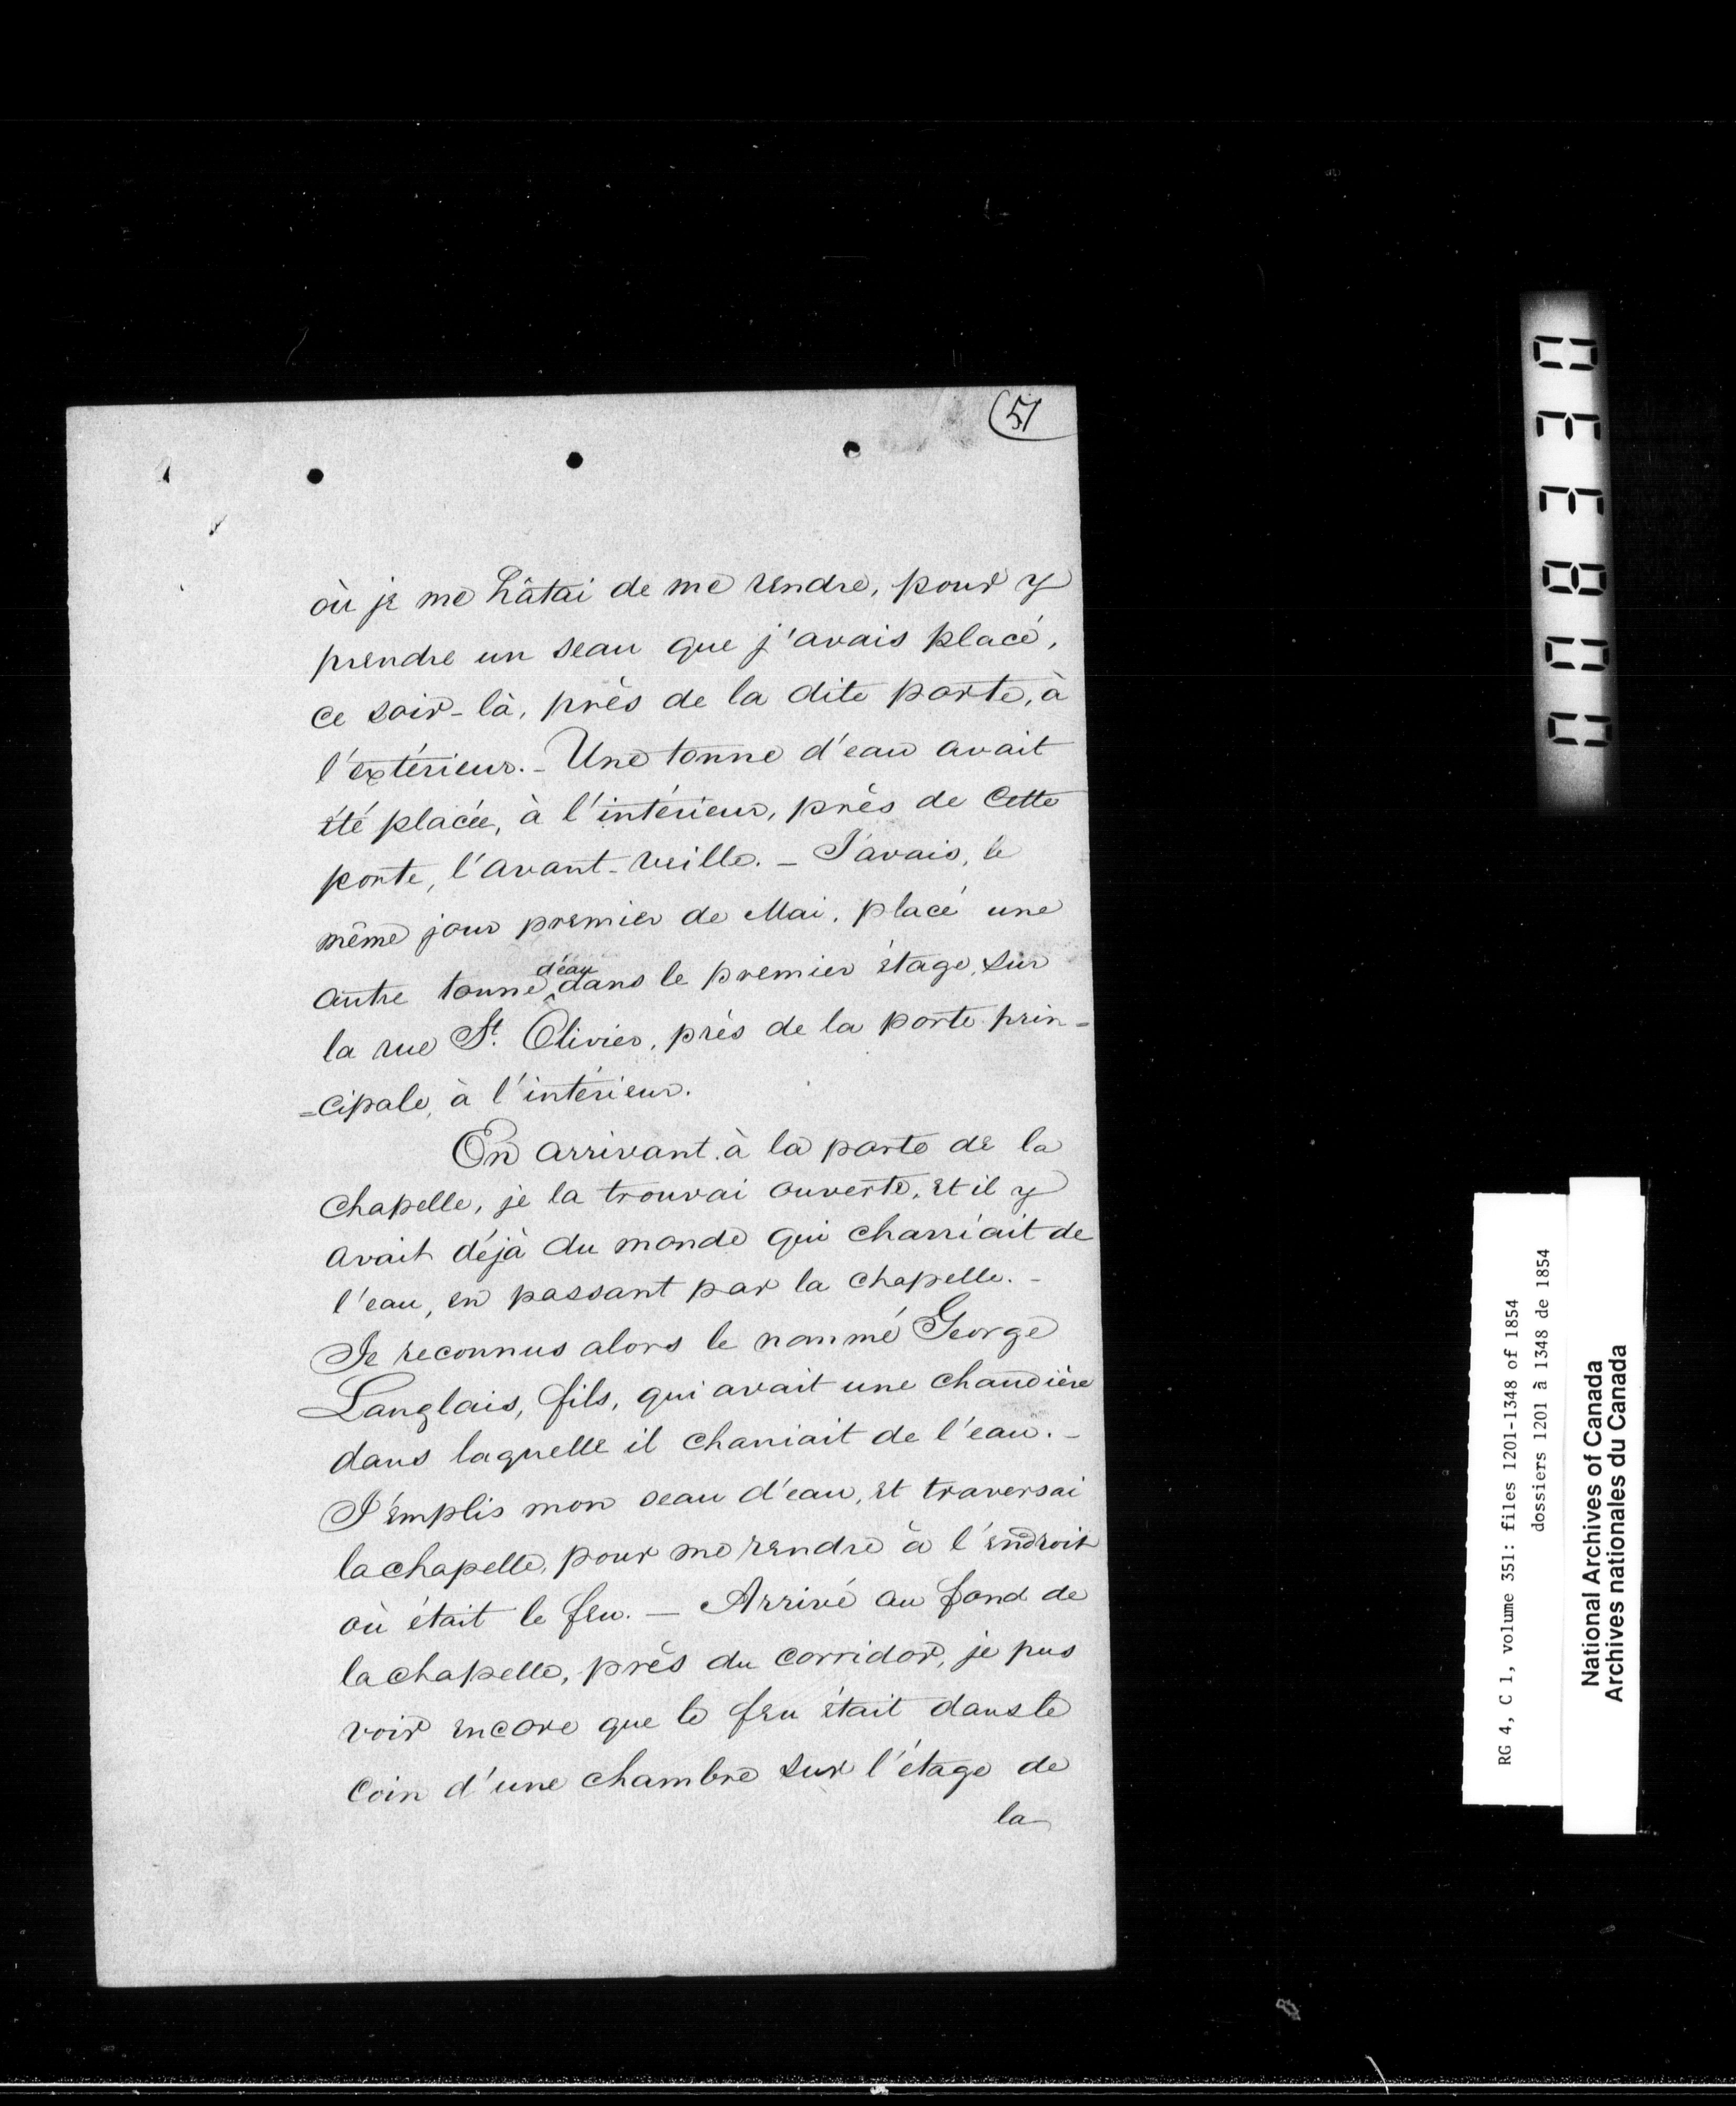 51
où je me hâtai de me rendre, pour y
prendre un seau que j'avais placé,
ce soir-là, près de la dite porte, à
l'extérieur. - Une tonne d'eau avait
été placée, à l'intérieur, près de cette
porte, l'avant-veille. - J'avais, le
même jour premier de Mai, placé une
autre tonne d'eau dans le premier étage, sur
la rue St. Olivier, près de la porte prin=
=cipale, à l'intérieur.
En arrivant à la porte de la
chapelle, je la trouvai ouverte, et il y
avait déjà du monde qui charriait de
l'eau, en passant par la chapelle. -
Je reconnus alors le nommé George
Langlais, fils, qui avait une chaudière
dans laquelle il charriait de l'eau. -
J'emplis mon seau d'eau, et traversai
la chapelle, pour me rendre à l'endroit
où était le feu. - Arrivé au fond de
la chapelle, près du corridor, je pus
voir encore que le feu était dans le
coin d'une chambre sur l'étage de
la
RG 4, C 1, volume 351: files 1201-1348 of 1854
dossiers 1201 à 1348 de 1854
National Archives of Canada
Archives nationales du Canada